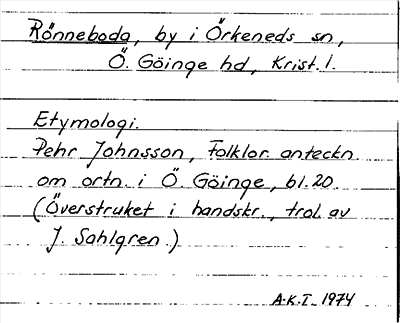 Rönneboda, by i Örkeneds sn,
Ö. Göinge hd, Krist. l.
Etymologi.
Pehr Johnsson, Folklor. anteckn.
om ortn. i Ö. Göinge, bl. 20.
(Överstruket i handskr., trol. av
J. Sahlgren.)
A.K.T. 1974